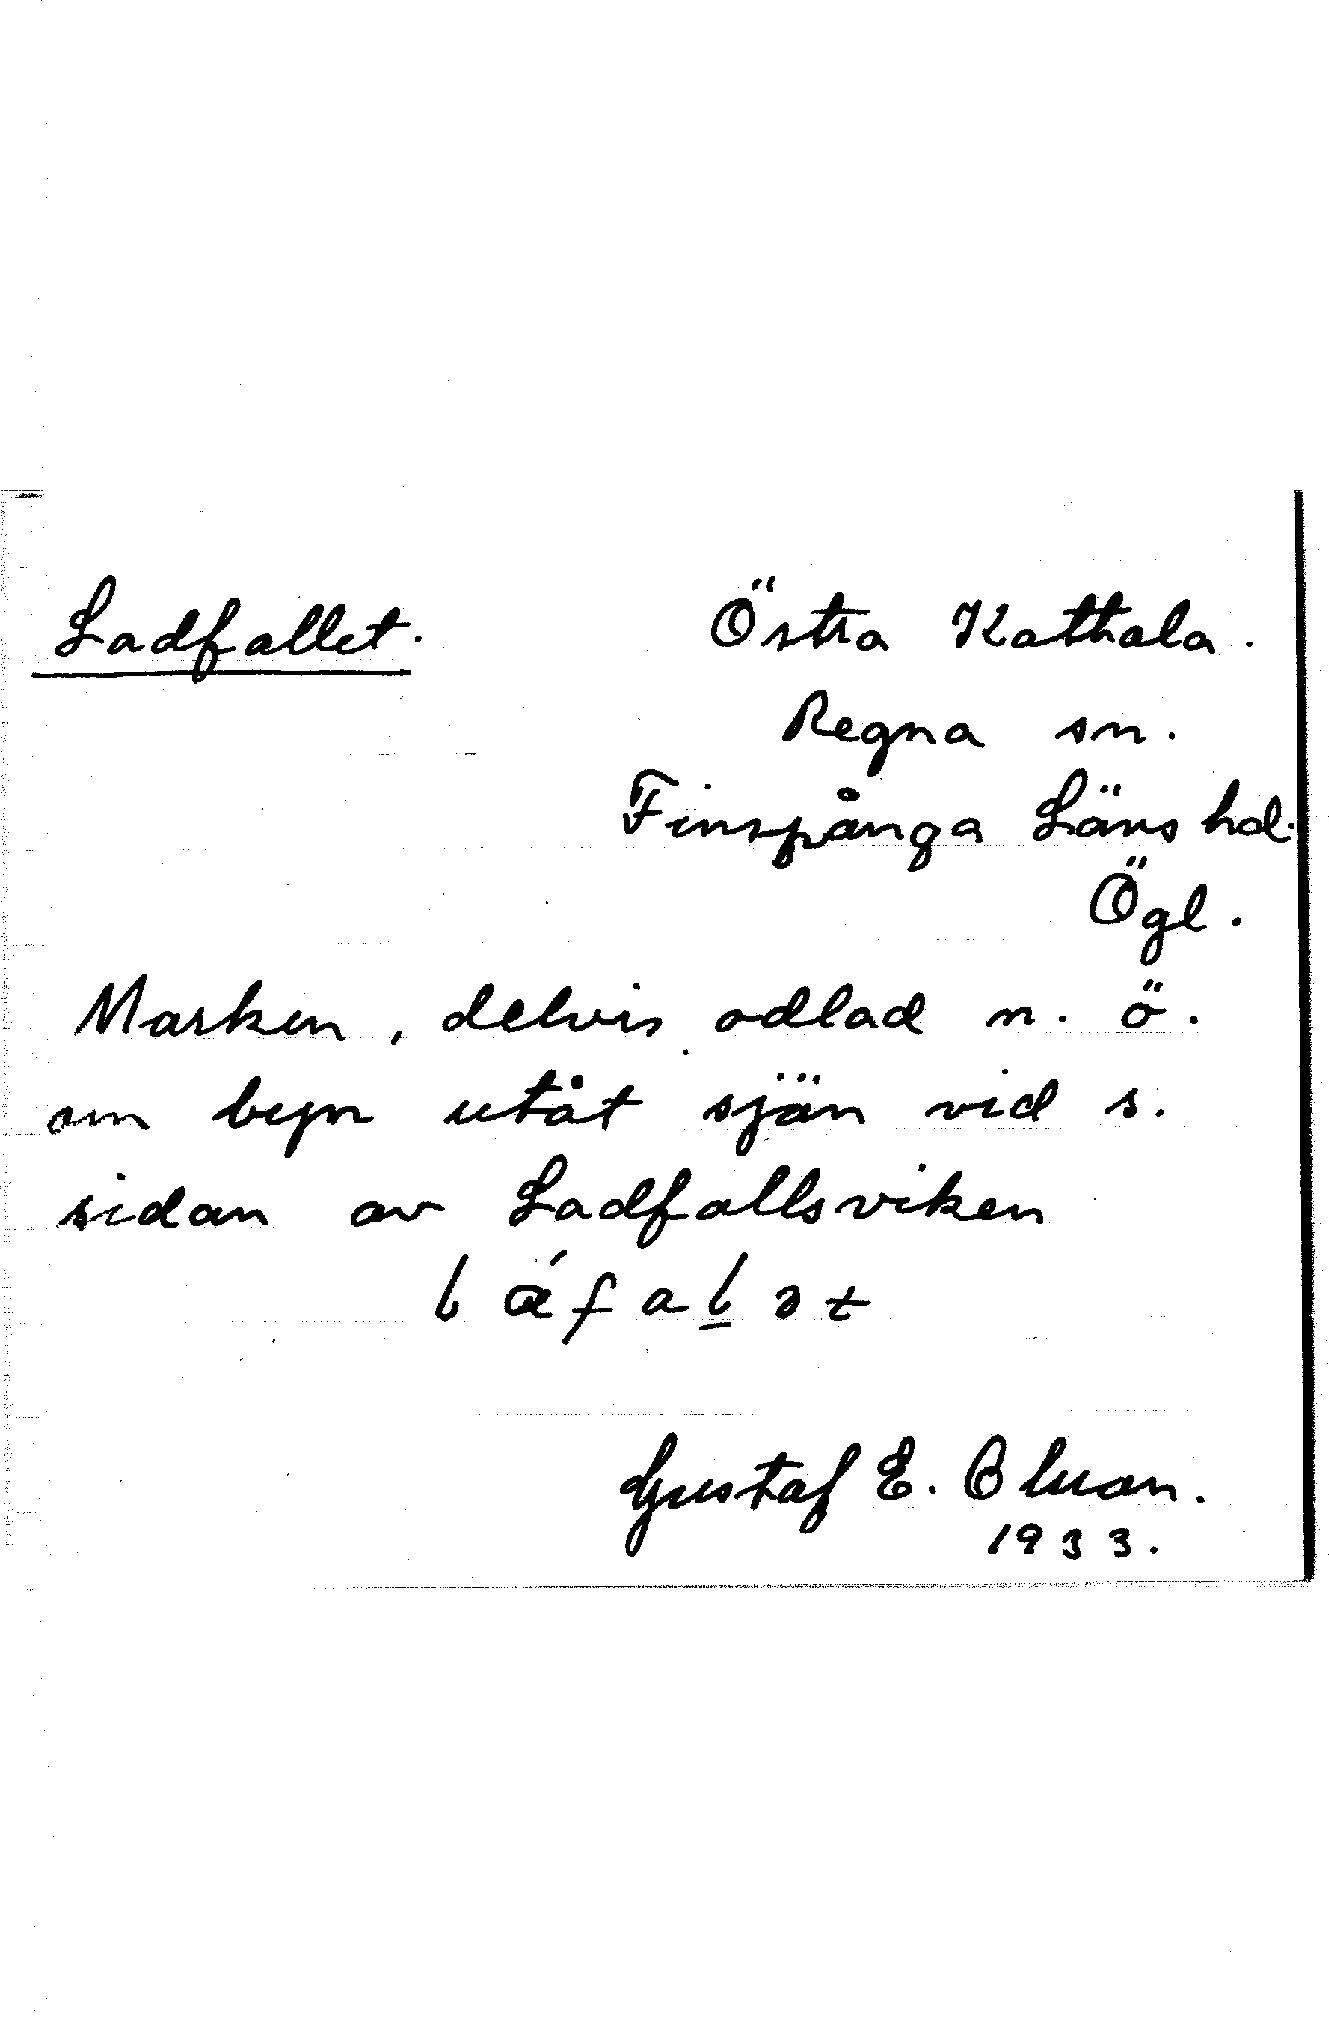 Ladfallet.
Östra Kathala.
Regna sn.
Finspånga Läns hd.
Ögl.
Marken, delvis odlad n. ö.
om byn utåt sjön vid s.
sidan av Ladfallsviken
Gustaf E.
1933.